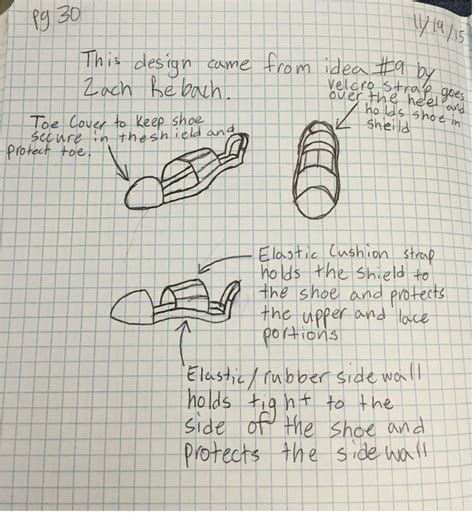 pg 30
11/19/15
This design came from idea #9 by
Zach Rebach.
Toe Cover to keep shoe
secure in the shield and
protect toe.
Velcro strap goes
over the heel and
holds shoe in
sheild
Elastic Cushion strap
holds the shield to
the shoe and protects
the upper and lace
portions
Elastic/rubber side wall
holds tight to the
side of the shoe and
protects the side wall